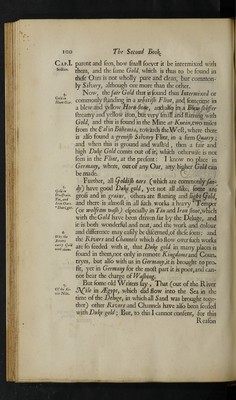 100 The Second Book,
CAP.I. parent and seen, how small soever it be intermixed with
Section them, and the same Gold, which is thus to be found in
these Ours is not wholly pure and clean, but common-
ly Silvery, although one more than the other.
Now, the fair Gold that is found thus Intermixed is
Gold in commonly standing in a whitish Flint, and sometime in
a blew and yellow Horn-stone, and also in a Blew
streamy and yellow iron, but very small and flaming with
Gold, and this is found in the Mine at two miles
from the Eal in Bohemia, towards the West, where there
is also found a greenish Silvery Flint, in a firm Quarry;
and when this is ground and washed, then a fair and
high Duke Gold comes out of it, which otherwise is not
seen in the Flint, at the present: I know no place in
Germany, where, out of any Oar, any higher Gold can
be made.
Further, all Goldish oars (which are commonly
) have good Duke gold, yet not all alike, some are
gross and in grains, others are flaming and light Gold,
and there is almost in all such works a horry Temper
(or wolfram matter) especially in Tin and Iron stone, which
with the Gold have been driven far by the Deluge, and
it is both wonderful and neat, and the work and colour
and difference may easily be discerned, of these items: and
the Rivers and Channels which do flow over such works
are so seeded with it, that Duke gold in many places is
found in them, not only in remote Kingdoms and Coun-
treys, but also with us in Germany, it is brought to pro-
fit, yet in Germany for the most part it is poor, and can-
not bear the charge of Washing.
But some old Writers say, That (out of the River
Nile in Ægypt, which did flow into the Sea in the
time of the Deluge, in which all Sand was brought toge-
ther) other Rivers and Channels have also been seeded
with Duke gold; But, to this I cannot consent, for this
Reason